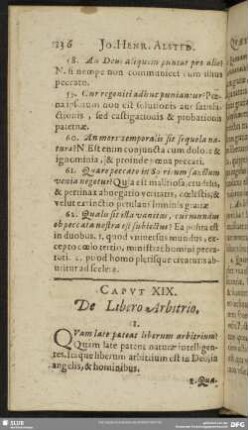 136 JO. HENR. ALSTED.
58. An Deus aliquem puniat pro alio?
N. si nempe non communicet cum illius
peccato.
59. Cur regeniti adhuc puniantur? Poe-
na eorum non est solutionis aut satisfa-
ctionis, sed castigationis & probationis
paternæ.
60. An mors temporalis sit sequela na-
turæ? N. Est enim conjuncta cum dolore &
ignominia, & proinde pœna peccati.
61. Quare peccato in Spiritum sanctum
venia negetur? Quia est malitiosa, crudelis,
& pertinax abnegatio veritatis cœlestis, &
velut extinctio penitus luminis gratiæ.
62. Qualis sit ista vanitas, cui mundus
ob peccata nostra est subjectus? Ea posita est
in duobus. 1. quod universus mundus, ex-
cepto cœlo tertio, ministret homini pecca-
turi. 2. quod homo plerisque creaturis ab-
utitur ad scelera.
CAPUT XIX.
De Libero Arbitrio.
1.
QVam late pateat liberum arbitrium?
Quàm late patent naturæ intelligen-
tes. Itaque liberum arbitrium est in Deo, in
angelis, & hominibus.
2. Qua-
SLUB
DFG